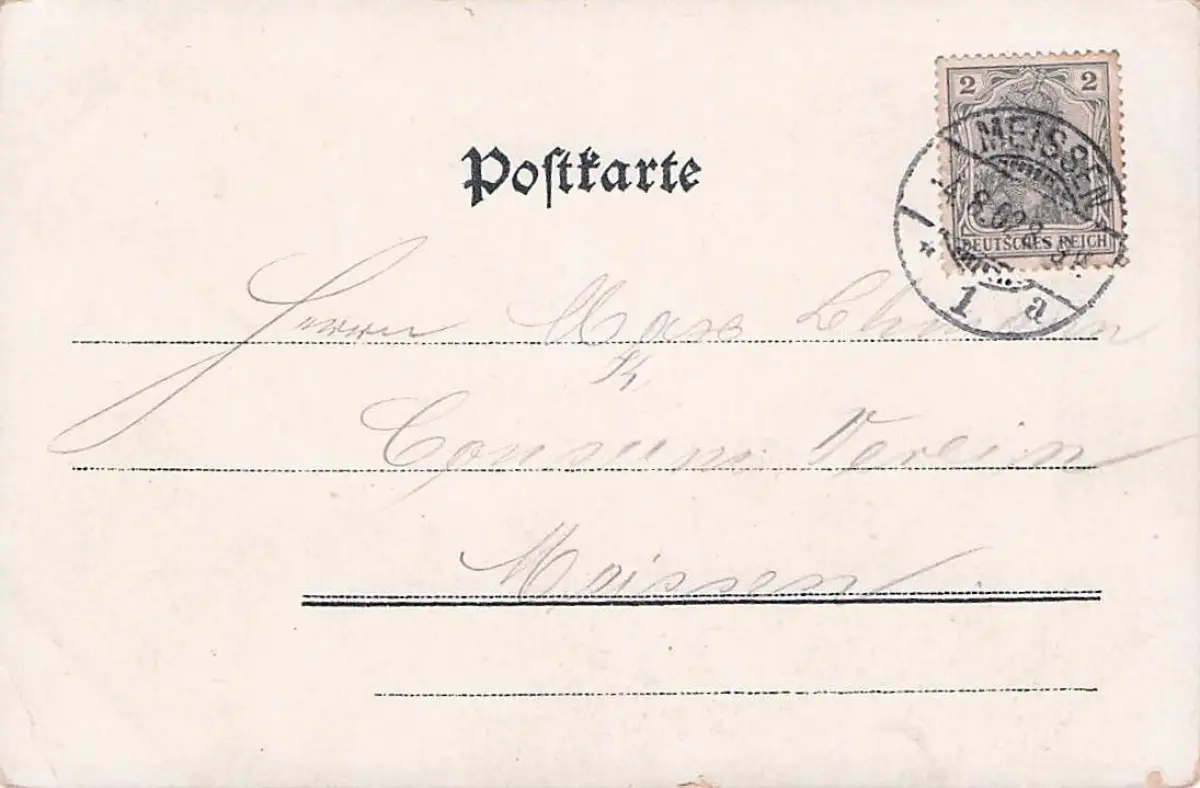 Postkarte
2 2
DEUTSCHES REICH
MEISSEN
1 a
Herrn Max
Consum Verein
Meissen